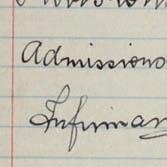 Admissions
Infirmary